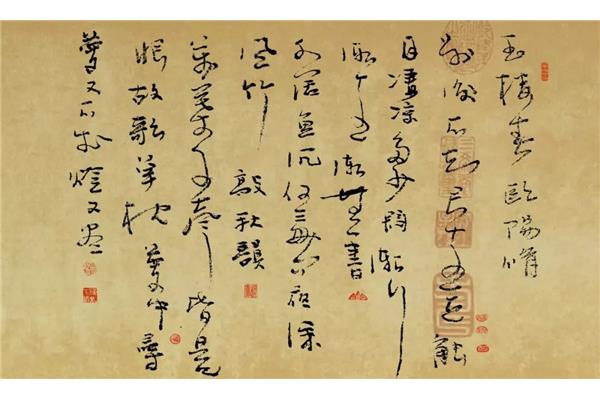 玉樓春 歐陽脩
別後不知君遠近觸
目淒涼多少悶漸行
漸遠漸無書
水闊魚沉何處問夜深
風竹敲秋韻
萬葉千聲皆是
恨故欹單枕夢中尋
夢又不成燈又燼